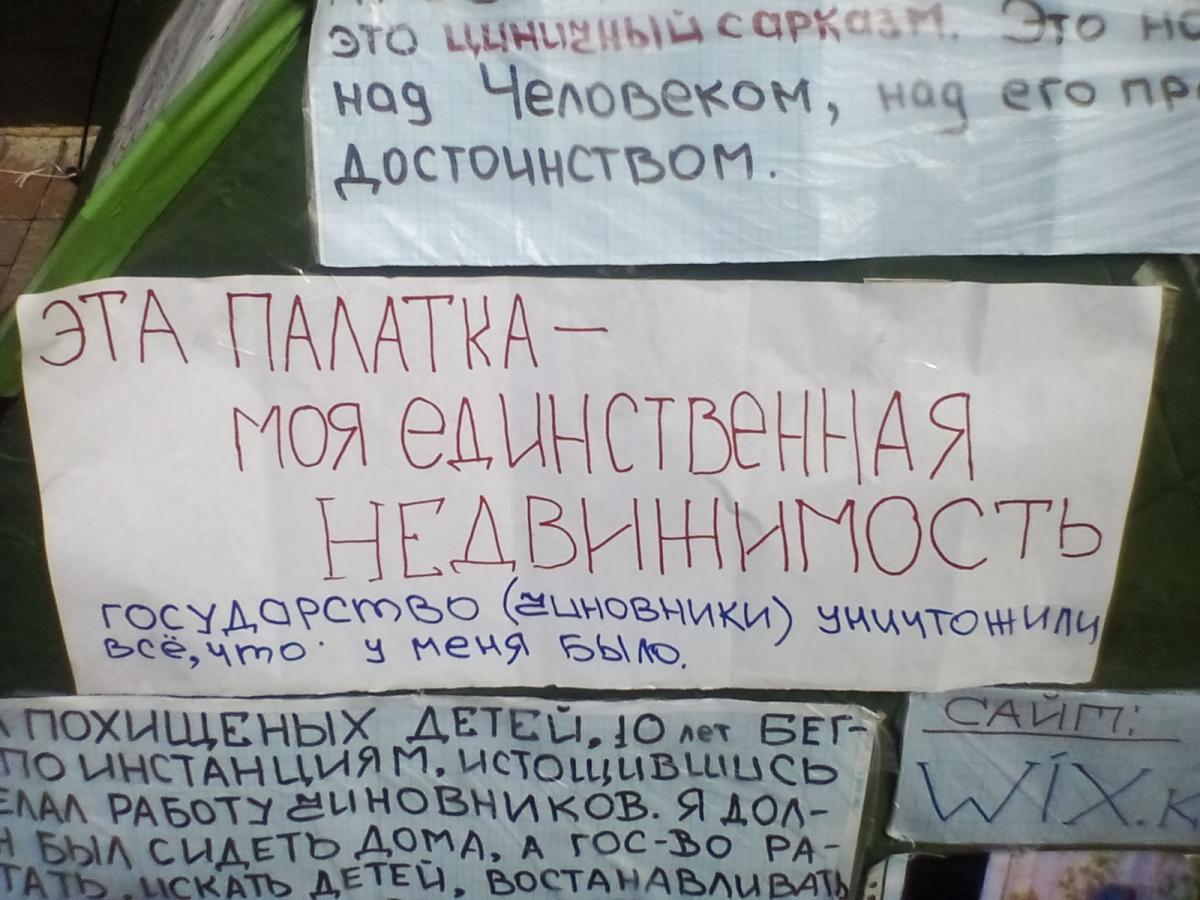 это циничный сарказм. Это
над Человеком, над его
достоинством.
ЭТА ПАЛАТКА –
МОЯ ЕДИНСТВЕННАЯ
НЕДВИЖИМОСТЬ
ГОСУДАРСТВО (ЧИНОВНИКИ) УНИЧТОЖИЛИ
ВСЁ, ЧТО У МЕНЯ БЫЛО.
ПОХИЩЕНЫХ ДЕТЕЙ. 10 лет БЕГ-
ПО ИНСТАНЦИЯМ. ИСТОЩИВШИСЬ
РАБОТУ ЧИНОВНИКОВ. Я ДОЛ-
БЫЛ СИДЕТЬ ДОМА, А ГОС-ВО РА-
ИСКАТЬ ДЕТЕЙ, ВОСТАНАВЛИВАТЬ
САЙТ:
WIX.